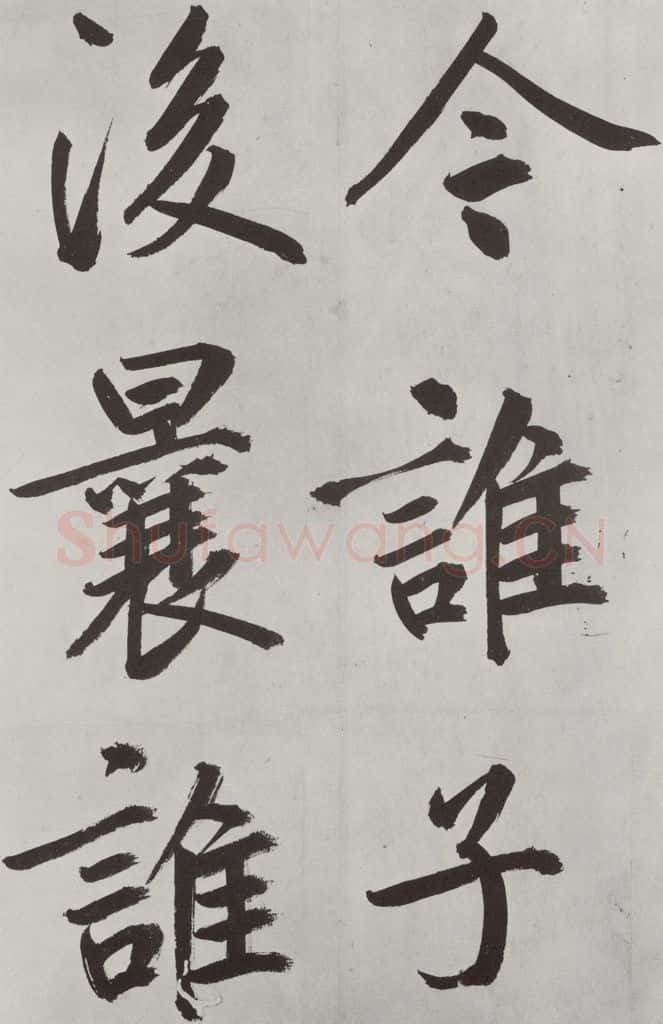 今誰子
後曩誰
Shufawang.CN